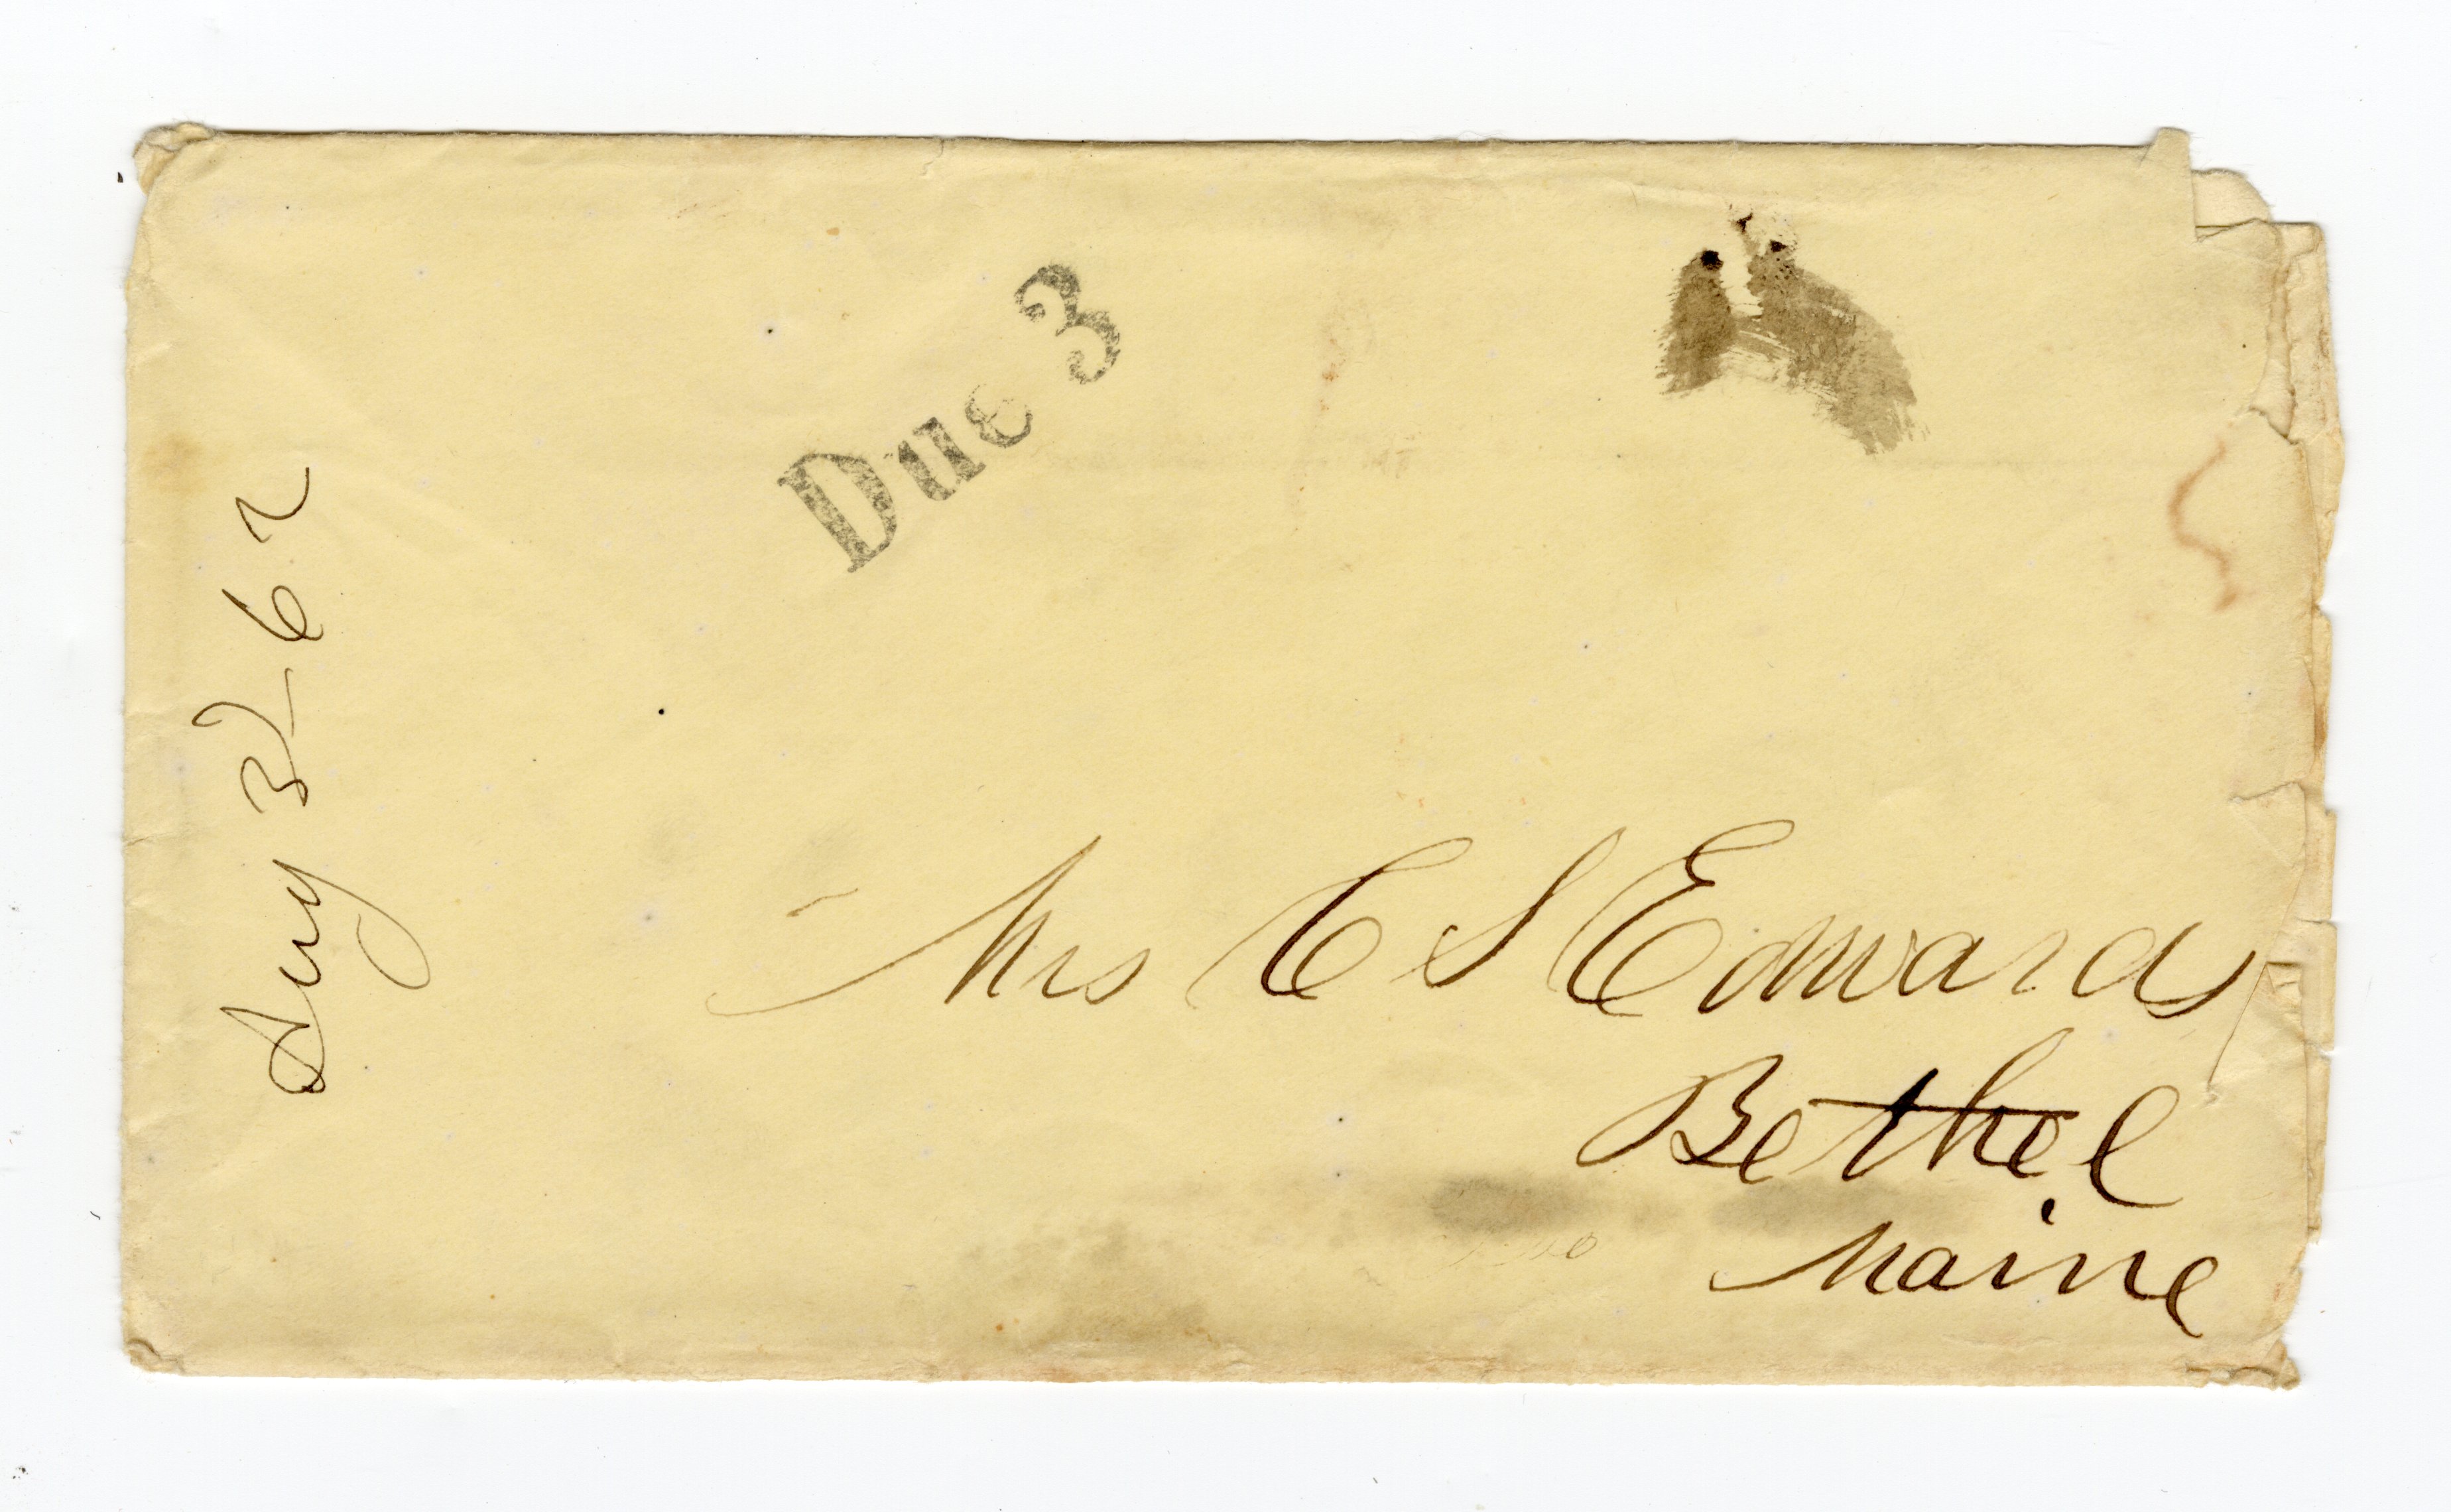 Due 3
Aug 3d 62
Mrs C S Edwards
Bethel
Maine